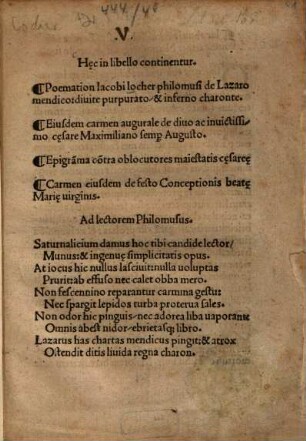 V.
Hęc in libello continentur.
¶Poemation Iacobi locher philomusi de Lazaro
mendicordiuite purpurato⁄& inferno charonte.
¶Eiusdem carmen augurale de diuo ac inuictissi⸗
mo cęsare Maximiliano semp Augusto.
¶Epigrãma cõtra oblocutores maiestatis cęsareę
¶Carmen eiusdem de festo Conceptionis beatę
Marię uirginis.
Ad lectorem Philomusus.
Saturnalicium damus hoc tibi candide lector⁄
Munus:& ingenuę simplicitatis opus.
At iocus hic nullus lasciuit:nulla uoluptas
Prurit:ab effuso nec calet obba mero.
Non fescennino reparantur carmina gestu:
Nec spargit lepidos turba proterua sales.
Non odor hic pinguis⁄nec adorea liba uaporant
Omnis abest nidor⁄ebrietasq; libro.
Lazarus has chartas mendicus pingit:& atrox
Ostendit ditis liuida regna charon.